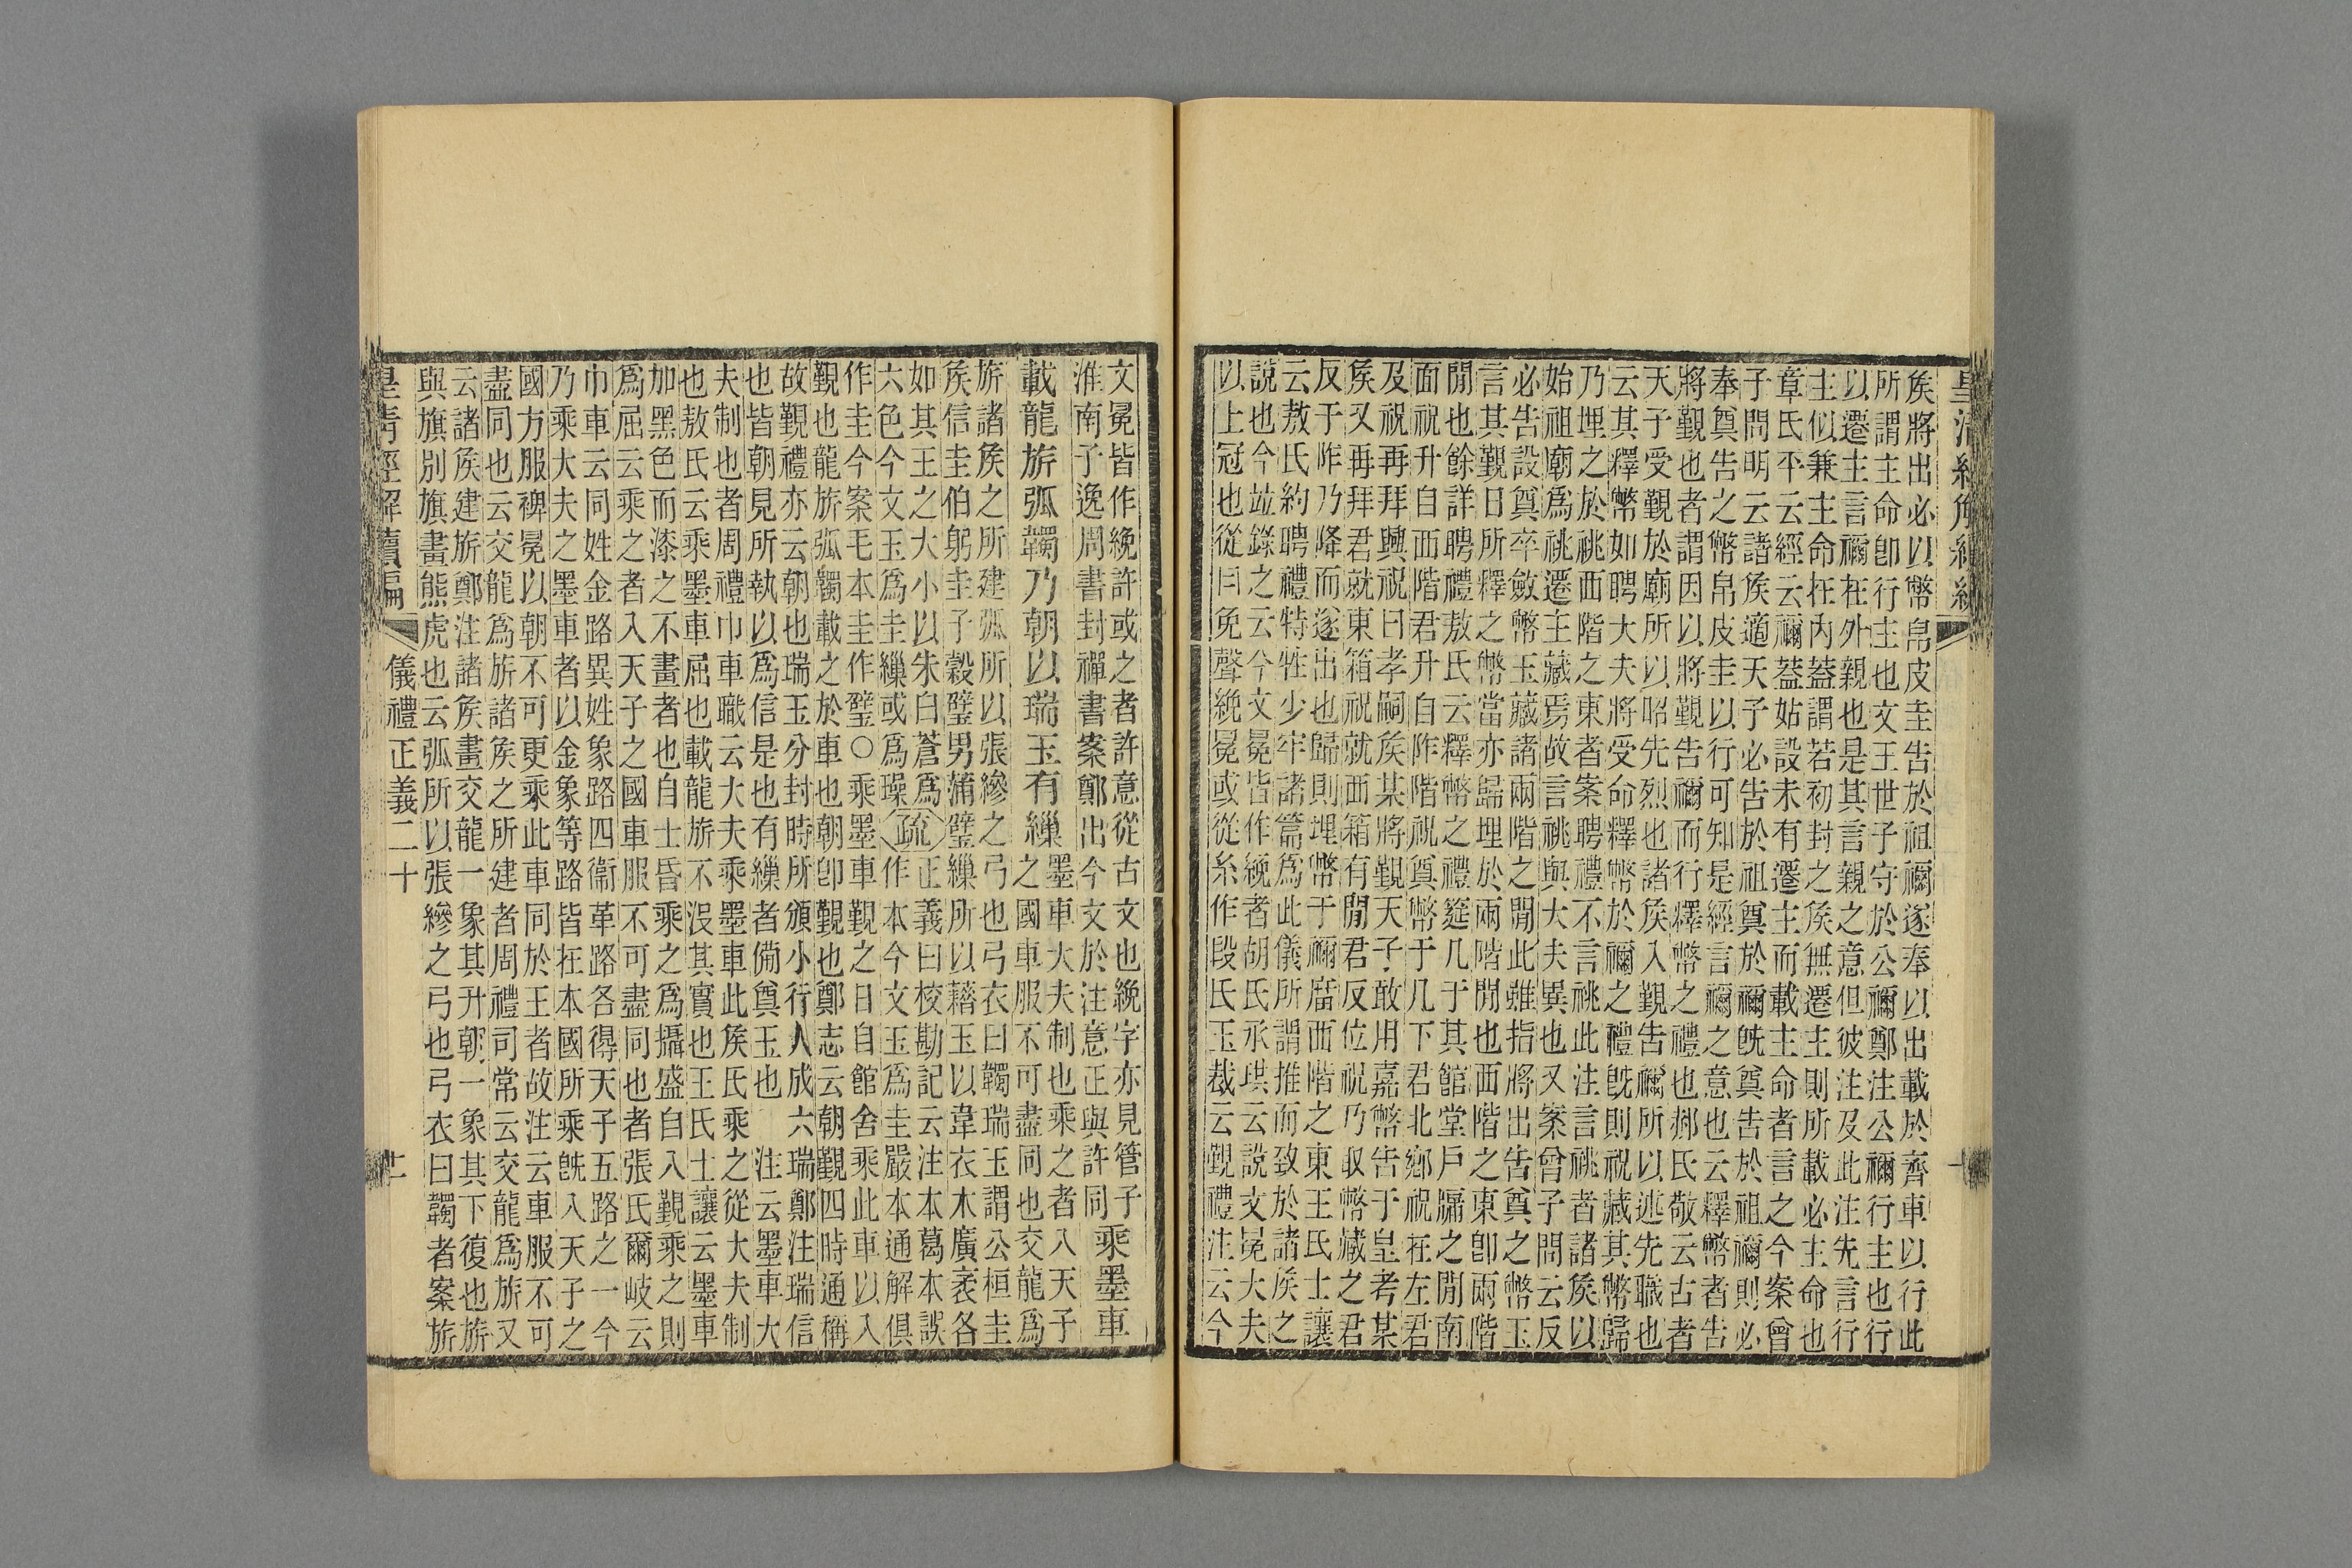 矦將出必以幣帛皮圭告於祖禰遂奉以出載於齊車以行此
所謂主命卽行主也文王世子守於公禰鄭注公禰行主也行
以遷主言禰在外親也是其言親之意但彼注及此注先言行
主似兼主命在內蓋謂若初封之矦無遷主則所載必主命也
章氏平云經云禰蓋姑設未有遷主而載主命者言之今案曾
子問明云諸矦適天子必告於祖奠於禰旣奠告於祖禰則必
奉奠告之幣帛皮圭以行可知是經言禰之意也云釋幣者告
將覲也者謂因以將覲告禰而行釋幣之禮也郝氏敬云古者
天子受覲於廟所以昭先烈也諸矦入覲告禰所以述先職也
云其釋幣如聘大夫將受命釋幣於禰之禮旣則祝藏其幣歸
乃埋之於祧西階之東者案聘禮不言祧此注言祧者諸矦以
始祖廟爲祧遷主藏焉故言祧與大夫異也又案曾子問云反
必告設奠卒斂幣玉藏諸兩階之閒此雖指將出告奠之幣玉
言其覲日所釋之幣當亦歸埋於兩階閒也西階之東卽兩階
閒也餘詳聘禮敖氏云釋幣之禮筵几于其館堂戶牖之閒南
面祝升自西階君升自阼階祝奠幣于几下君北鄉祝在左君
及祝再拜興祝曰孝嗣矦某將覲天子敢用嘉幣告于皇考某
矦又再拜君就東箱祝就西箱有閒君反位祝乃取幣藏之君
反于阼乃降而遂出也歸則埋幣于禰廟西階之東王氏士讓
云敖氏約聘禮特牲少牢諸篇爲此儀所謂推而致於諸矦之
說也今竝錄之云今文冕皆作絻者胡氏承珙云說文冕大夫
以上冠也從曰免聲絻冕或從糸作段氏玉裁云覲禮注云今
文冕皆作絻許或之者許意從古文也絻字亦見管子
淮南子逸周書封禪書案鄭出今文於注意正與許同　乘墨車
載龍旂弧韣乃朝以瑞玉有繅墨車大夫制也乘之者入天子
之國車服不可盡同也交龍爲
旂諸矦之所建弧所以張縿之弓也弓衣曰韣瑞玉謂公桓圭
矦信圭伯躬圭子穀璧男蒲璧繅所以藉玉以韋衣木廣袤各
如其玉之大小以朱白蒼爲
六色今文玉爲圭繅或爲璪疏正義曰校勘記云注本葛本誤
作本今文玉爲圭嚴本通解俱
作圭今案毛本圭作璧○乘墨車覲之日自館舍乘此車以入
覲也龍旂弧韣載之於車也朝卽覲也鄭志云朝覲四時通稱
故覲禮亦云朝也瑞玉分封時所頒小行人成六瑞鄭注瑞信
也皆朝見所執以爲信是也有繅者備奠玉也　注云墨車大
夫制也者周禮巾車職云大夫乘墨車此矦氏乘之從大夫制
也敖氏云乘墨車屈也載龍旂不沒其實也王氏士讓云墨車
加黑色而漆之不畫者也自士昏乘之爲攝盛自入覲乘之則
爲屈云乘之者入天子之國車服不可盡同也者張氏爾岐云
巾車云同姓金路異姓象路四衞革路各得天子五路之一今
乃乘大夫之墨車者以金象等路皆在本國所乘旣入天子之
國方服裨冕以朝不可更乘此車同於王者故注云車服不可
盡同也云交龍爲旂諸矦之所建者周禮司常云交龍爲旂又
云諸矦建旂鄭注諸矦畫交龍一象其升朝一象其下復也旂
與旗別旗畫熊虎也云弧所以張縿之弓也弓衣曰韣者案旂
皇淸經解續編　儀禮正義二十